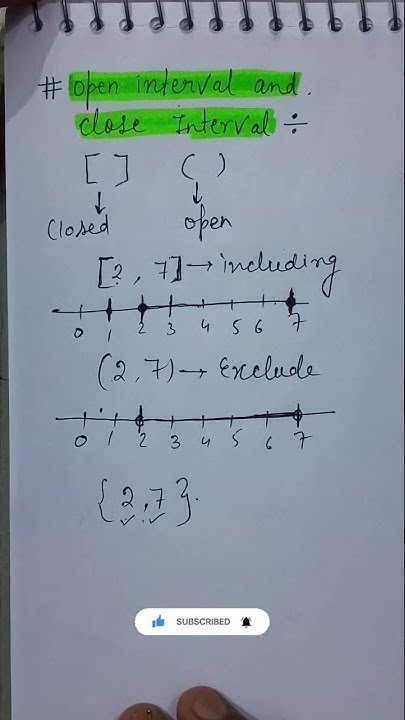 # open interval and.
close Interval ÷
[ ] ( )
Closed open
[2, 7] → including
0 1 2 3 4 5 6 7
(2, 7) → Exclude
0 1 2 3 4 5 6 7
{2, 7}.
SUBSCRIBED